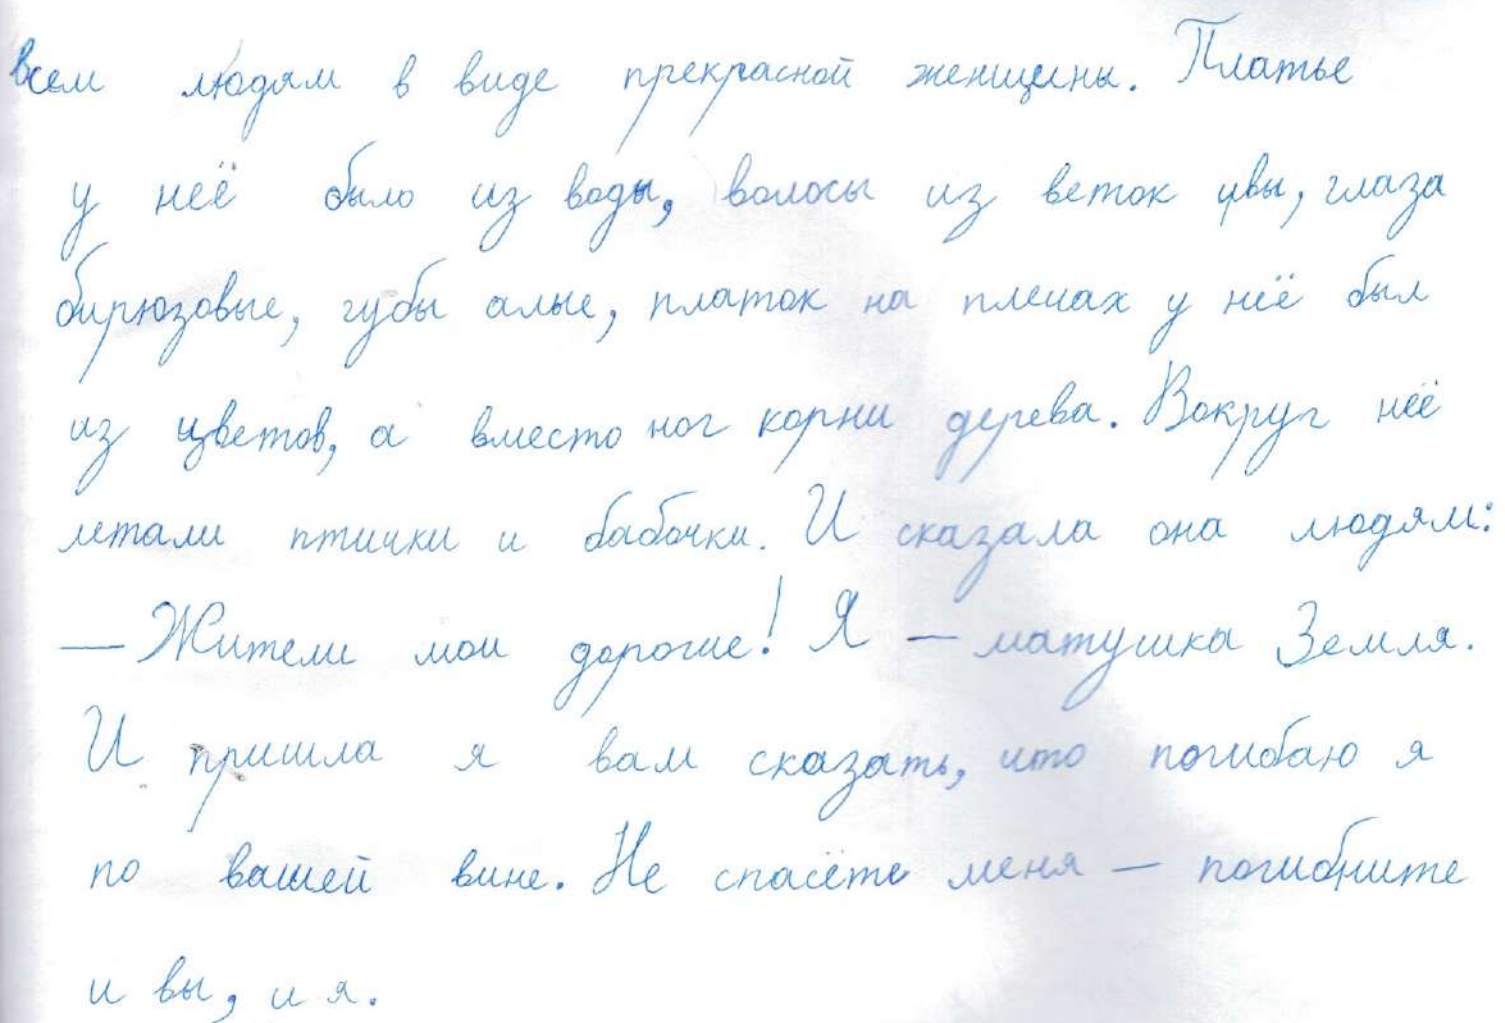 всем людям в виде прекрасной женщины. Платье
у неё было из воды, волосы из веток ивы, глаза
бирюзовые, губы алые, платок на плечах у неё был
из цветов, а вместо ног корни дерева. Вокруг неё
летали птички и бабочки. И сказала она людям:
— Жители мои дорогие! Я — матушка Земля.
И пришла я вам сказать, что погибаю я
по вашей вине. Не спасёте меня — погибните
и вы, и я.